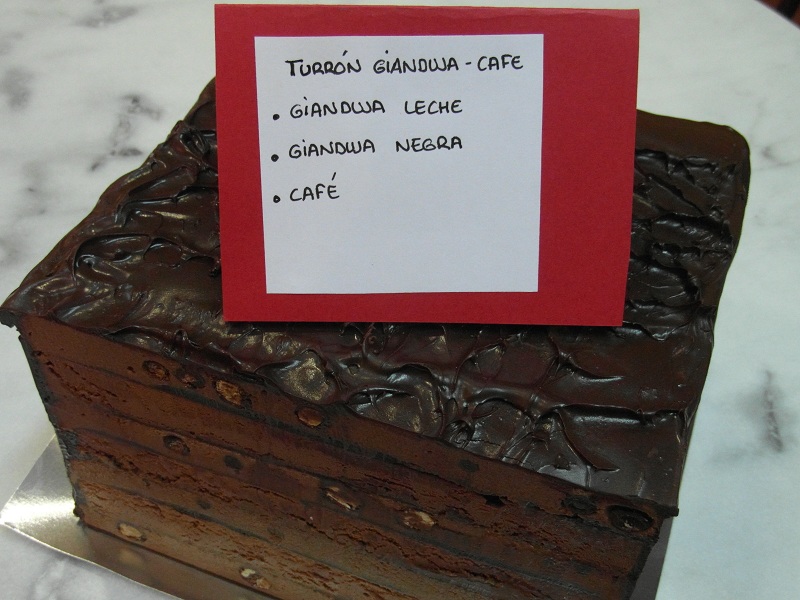 TURRÓN GIANDUJA - CAFE
• GIANDUJA LECHE
• GIANDUJA NEGRA
• CAFÉ